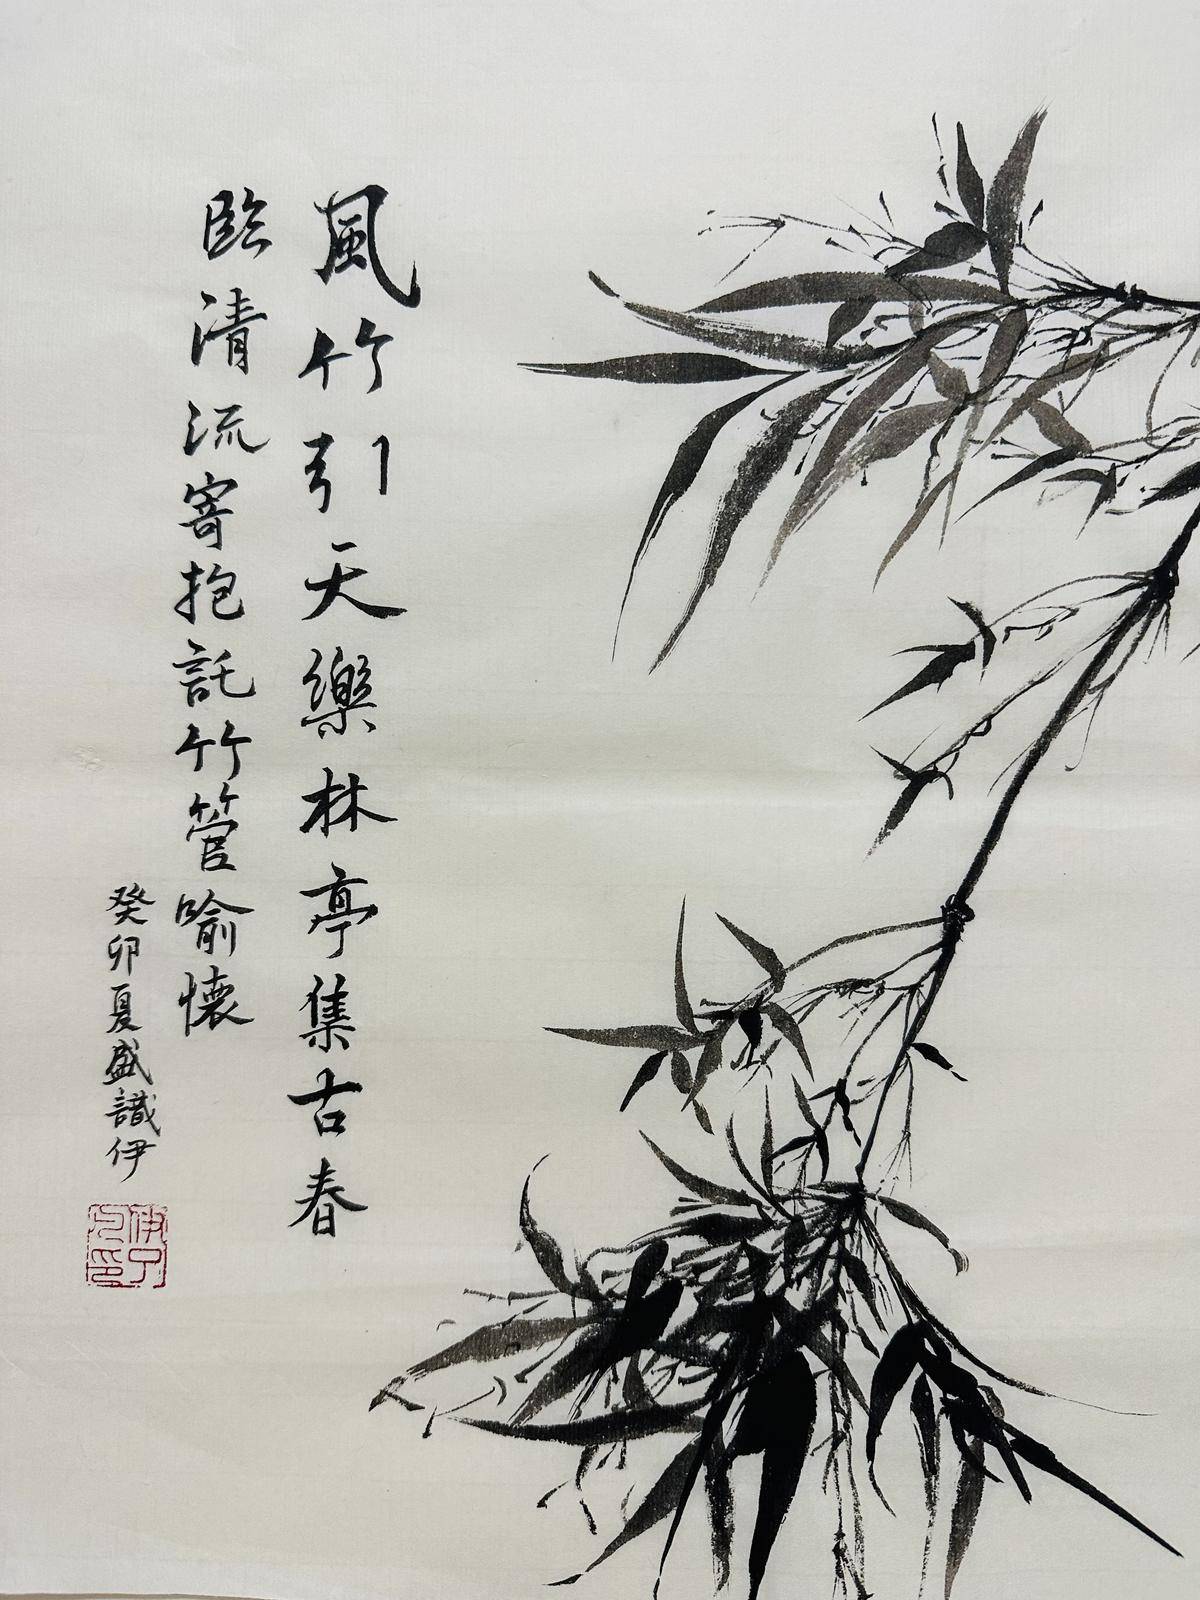 風竹引天樂林亭集古春
臨清流寄抱託竹管喻懷
癸卯夏盛識伊